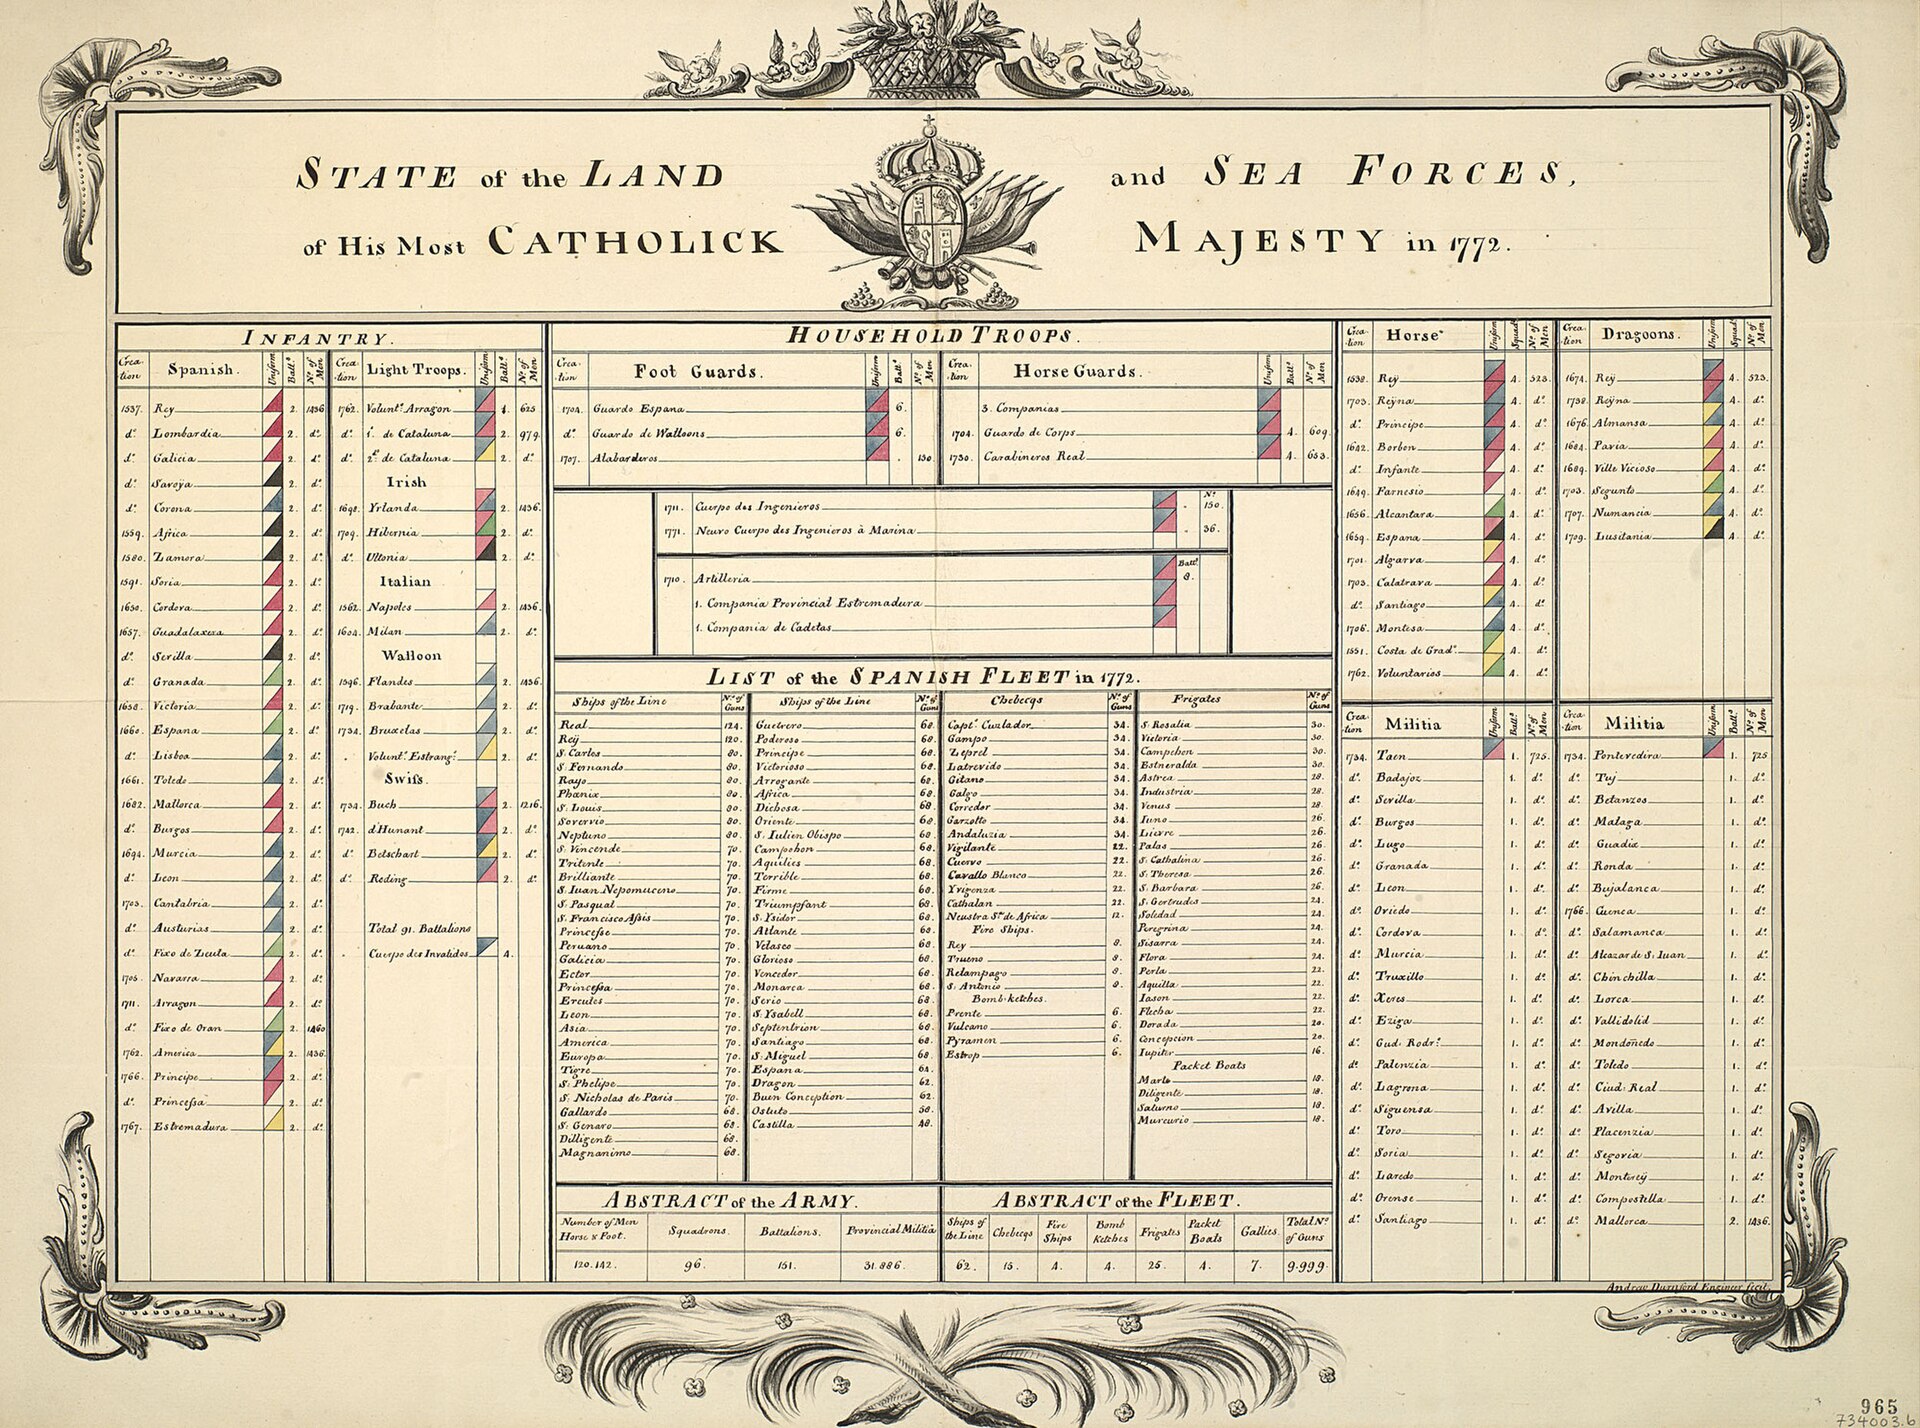 STATE of the LAND and SEA FORCES,
of His Most CATHOLICK MAJESTY in 1772.
INFANTRY.
Creation Spanish. Uniform Batt.s No. of Men
1537. Rey 2. 1436
do. Lombardia 2. do.
do. Galicia 2. do.
do. Savoya 2. do.
do. Corona 2. do.
1559. Africa 2. do.
1580. Zamora 2. do.
1591. Soria 2. do.
1650. Cordova 2. do.
1657. Guadalaxera 2. do.
do. Sevilla 2. do.
do. Granada 2. do.
1658. Victoria 2. do.
1660. Espana 2. do.
do. Lisboa 2. do.
1661. Toledo 2. do.
1682. Mallorca 2. do.
do. Burgos 2. do.
1694. Murcia 2. do.
do. Leon 2. do.
1703. Cantabria 2. do.
do. Austurias 2. do.
do. Fixo de Zeuta 2. do.
1705. Navarra 2. do.
1711. Arragon 2. do.
do. Fixo de Oran 2. 1460
1762. America 2. 1436.
1766. Principe 2. do.
do. Princessa 2. do.
1767. Estremadura 2. do.
Creation Light Troops. Uniform Batt.s No. of Men
1762. Volunt.s Arragon 1. 625
do. 1.o de Cataluna 2. 979.
do. 2.d de Cataluna 2. do.
Irish
1698. Yrlanda 2. 1436.
1709. Hibernia 2. do.
do. Ultonia 2. do.
Italian
1562. Napoles 2. 1436.
1604. Milan 2. do.
Walloon
1596. Flandes 2. 1436.
1719. Brabante 2. do.
1734. Bruxelas 2. do.
Volunt.s Estrang.s 2. do.
Swiss.
1734. Buch 2. 1216.
1742. d'Hunant 2. do.
do. Betschart 2. do.
do. Reding 2. do.
Total 91. Battalions
Cuerpo des Invalidos 4.
HOUSEHOLD TROOPS.
Creation Foot Guards. Uniform Batt.s No. of Men
1704. Guardo Espana 6.
do. Guardo de Walloons 6.
1707. Alabarderos 150.
Creation Horse Guards. Uniform Batt.s No. of Men
3. Companias
1704. Guardo de Corps 4. 609.
1730. Carabineros Real 4. 653.
No.
1711. Cuerpo des Ingenieros 150.
1771. Neuvo Cuerpo des Ingenieros à Marina 36.
Batt.s
1710. Artilleria 8.
1. Compania Provincial Estremadura
1. Compania de Cadetas
LIST of the SPANISH FLEET in 1772.
Ships of the Line No. of Guns
Real 124.
Rey 120.
S. Carlos 80.
S. Fernando 80.
Rayo 80.
Phœnix 80.
S. Louis 80.
Sovervio 80.
Neptuno 80.
S. Vincende 70.
Tritente 70.
Brilliante 70.
S. Iuan Nepomuceno 70.
S. Pasqual 70.
S. Francisco Assis 70.
Princesse 70.
Peruano 70.
Galicia 70.
Ector 70.
Princessa 70.
Ercules 70.
Leon 70.
Asia 70.
America 70.
Europa 70.
Tigre 70.
S. Phelipe 70.
S. Nicholas de Paris 70.
Gallardo 68.
S. Genaro 68.
Dilligente 68.
Magnanimo 68.
Ships of the Line No. of Guns
Guerrero 68.
Poderoso 68.
Principe 68.
Victorioso 68.
Arrogante 68.
Africa 68.
Dichosa 68.
Oriente 68.
S. Iulien Obispo 68.
Campohon 68.
Aquilies 68.
Terrible 68.
Firme 68.
Triumpfant 68.
S. Ysidor 68.
Atlante 68.
Velasco 68.
Glorioso 68.
Vencedor 68.
Monarca 68.
Serio 68.
S. Ysabell 68.
Septentrion 68.
Santiago 68.
S. Miguel 68.
Espana 64.
Dragon 62.
Buen Conception 62.
Ostuto 58.
Castilla 48.
Chebecqs No. of Guns
Capt. Cuulador 34.
Gampo 34.
Zeprel 34.
Latrevido 34.
Gitano 34.
Galgo 34.
Corredor 34.
Garzotto 34.
Andaluzia 34.
Vigilante 22.
Cuervo 22.
Cavallo Blanco 22.
Yvigenza 22.
Cathalan 22.
Neustra Sra. de Africa 12.
Fire Ships.
Rey 8.
Trueno 8.
Relampago 8.
S. Antonio 8.
Bomb-ketches.
Prente 6.
Vulcano 6.
Pyramen 6.
Estrop 6.
Frigates No. of Guns
S. Rosalia 30.
Victoria 30.
Campehon 30.
Estneralda 30.
Astrea 28.
Industria 28.
Venus 28.
Iuno 26.
Lievre 26.
Palas 26.
S. Cathalina 26.
S. Theresa 26.
S. Barbara 26.
S. Gertrudes 24.
Soledad 24.
Peregrina 24.
Sisarra 24.
Flora 24.
Perla 22.
Aquilla 22.
Iason 22.
Flecha 22.
Dorada 20.
Concepcion 20.
Iupiter 16.
Packet Boats
Marte 18.
Diligente 18.
Saturno 18.
Murcurio 18.
ABSTRACT of the ARMY.
Number of Men Horse & Foot. Squadrons. Battalions. Provincial Militia
120.142. 96. 151. 31.886.
ABSTRACT of the FLEET.
Ships of the Line Chebecqs Fire Ships Bomb Ketches Frigates Packet Boats Gallies Total No. of Guns
62. 15. 4. 4. 25. 4. 7. 9.999.
Creation Horse Uniform Squad.s No. of Men
1538. Rey 4. 523.
1703. Reyna 4. do.
do. Principe 4. do.
1642. Borbon 4. do.
do. Infante 4. do.
1649. Farnesio 4. do.
1656. Alcantara 4. do.
1659. Espana 4. do.
1701. Algarva 4. do.
1703. Calatrava 4. do.
do. Santiago 4. do.
1706. Montesa 4. do.
1551. Costa de Grad.a 4. do.
1762. Voluntarios 4. do.
Creation Dragoons. Uniform Squad.s No. of Men
1674. Rey 4. 523.
1738. Reyna 4. do.
1676. Almansa 4. do.
1684. Pavia 4. do.
1689. Ville Vicioso 4. do.
1703. Segunto 4. do.
1707. Numancia 4. do.
1709. Lusitania 4. do.
Creation Militia Uniform Batt.s No. of Men
1734. Taen 1. 725.
do. Badajoz 1. do.
do. Sevilla 1. do.
do. Burgos 1. do.
do. Lugo 1. do.
do. Granada 1. do.
do. Leon 1. do.
do. Oviedo 1. do.
do. Cordova 1. do.
do. Murcia 1. do.
do. Truxillo 1. do.
do. Xeres 1. do.
do. Eziga 1. do.
do. Gud. Rodr.o 1. do.
do. Palenzia 1. do.
do. Lagrona 1. do.
do. Siguensa 1. do.
do. Toro 1. do.
do. Soria 1. do.
do. Laredo 1. do.
do. Orense 1. do.
do. Santiago 1. do.
Creation Militia Uniform Batt.s No. of Men
1734. Pontevedira 1. 725
do. Tuj 1. do.
do. Betanzos 1. do.
do. Malaga 1. do.
do. Guadix 1. do.
do. Ronda 1. do.
do. Bujalanca 1. do.
1766. Cuenca 1. do.
do. Salamanca 1. do.
do. Alcazar de S. Iuan 1. do.
do. Chinchilla 1. do.
do. Lorca 1. do.
do. Vallidolid 1. do.
do. Mondoñedo 1. do.
do. Toledo 1. do.
do. Ciud. Real 1. do.
do. Avilla 1. do.
do. Placenzia 1. do.
do. Segovia 1. do.
do. Monterey 1. do.
do. Compostella 1. do.
do. Mallorca 2. 1436.
Andrew Durnford Engineer fecit.
965
734003.6